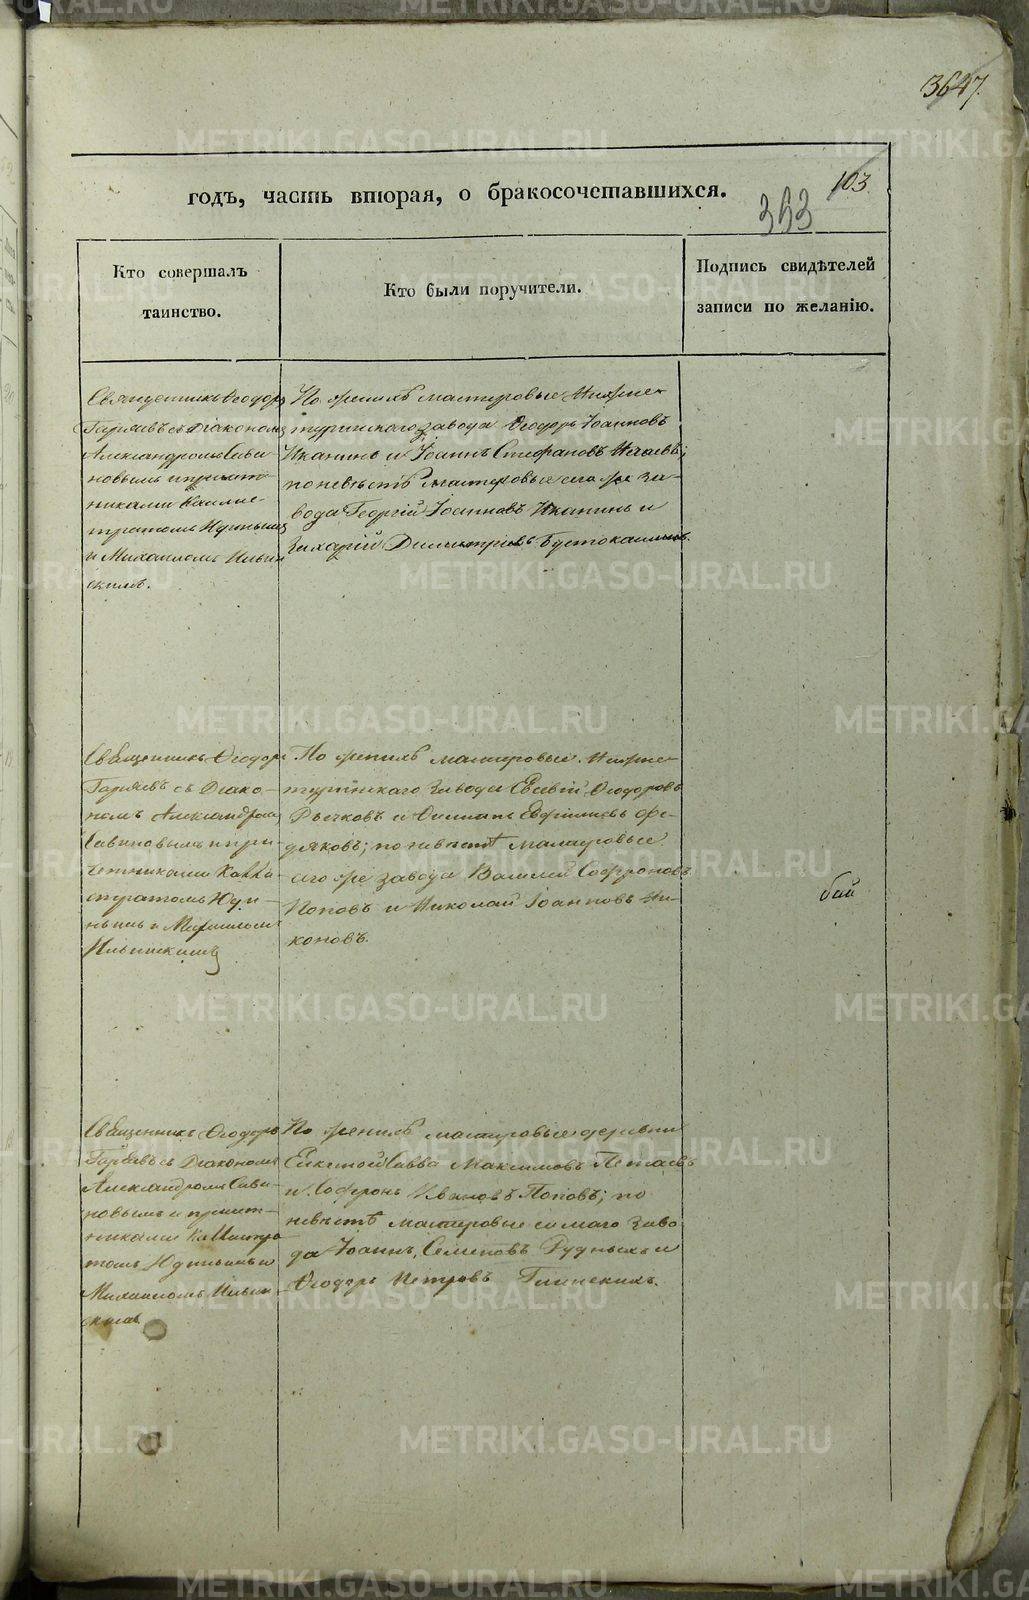 годъ, часть вторая, о бракосочетавшихся.
103.
353
Кто совершалъ
таинство.
Кто были поручители.
Подпись свидѣтелей
записи по желанію.
Священникъ Ѳеодоръ
Гаряевъ съ Діакономъ
Александромъ Сави-
новымъ и причет-
никами Каллис-
тратомъ Юдинымъ
и Михаиломъ Ильин
скимъ.
По женихѣ мастеровые Нижне-
туринскаго завода Ѳеодоръ Іоанновъ
Иканинъ и Іоаннъ Стефановъ
по невѣстѣ мастеровые сего же за-
вода Георгій Іоанновъ Иканинъ и
Захарій Димитріевъ
Священникъ Ѳеодоръ
Гаряевъ съ Діако-
номъ Александромъ
Савиновымъ и при-
четниками Калли-
стратомъ Юди-
нымъ и Михаиломъ
Ильинскимъ
По женихѣ мастеровые Нижне-
туринскаго завода Ѳеодоровъ
Рычковъ и Евфиміевъ Фе-
дяковъ; по невѣстѣ мастеровые
сего же завода Василій Софроновъ
Поповъ и Николай Іоанновъ Ни-
коновъ.
бай
Священникъ Ѳеодоръ
Гаряевъ съ Діакономъ
Александромъ Сави-
новымъ и причет-
никами Каллистра
томъ Юдинымъ и
Михаиломъ Ильин
скимъ
По женихѣ мастеровые деревни
Савва Максимовъ
и Софронъ Ивановъ Поповъ; по
невѣстѣ мастеровые самаго заво
да Іоаннъ Семеновъ Рудныхъ и
Ѳеодоръ Петровъ Глинскихъ.
METRIKI.GASO-URAL.RU